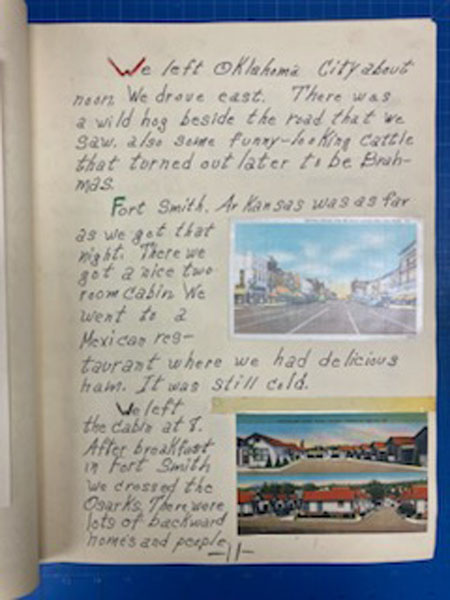 We left Oklahoma City about
noon. We drove east. There was
a wild hog beside the road that we
saw, also some funny-looking cattle
that turned out later to be Brah-
mas.
Fort Smith, Arkansas was as far
as we got that
night. There we
got a nice two
room cabin. We
went to a
Mexican res-
taurant where we had delicious
ham. It was still cold.
We left
the cabin at 8.
After breakfast
in Fort Smith
we crossed the
Osarks. There were
lots of backward
homes and people
-11-